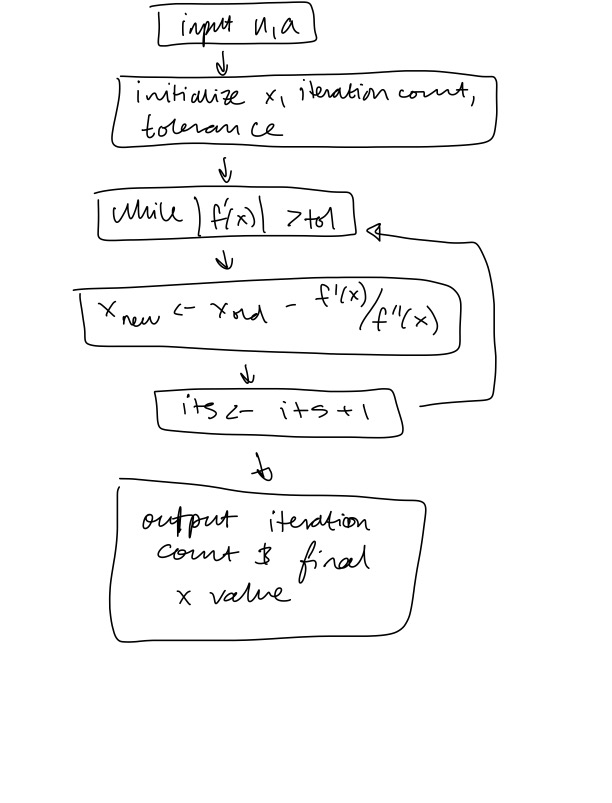 input n, a
initialize x, iteration count,
tolerance
while |f'(x)| > tol
x new ← x old - f'(x)/f"(x)
its ← its + 1
output iteration
count & final
x value